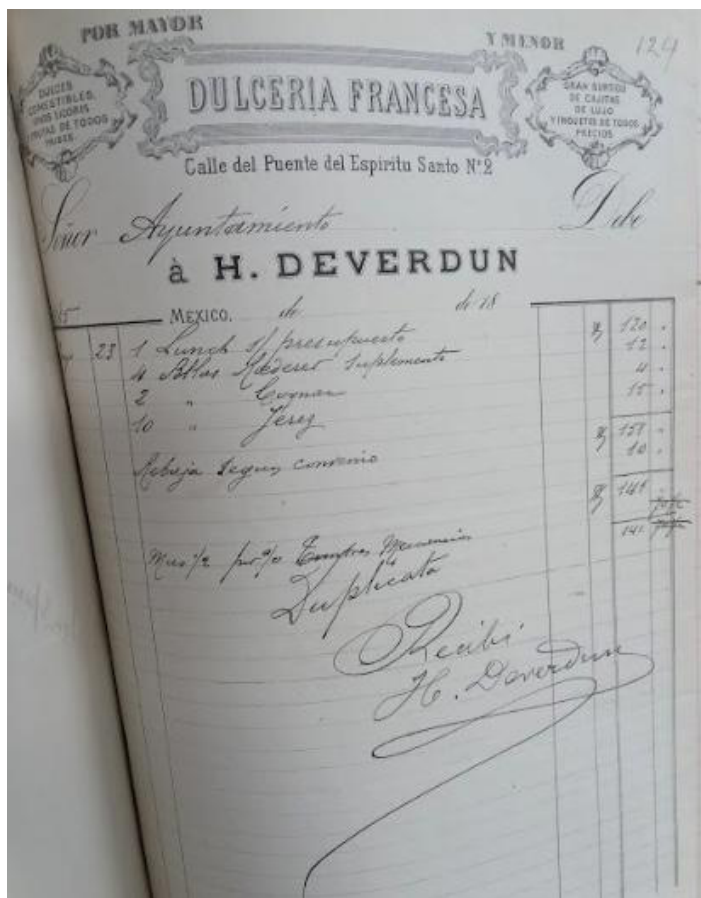 POR MAYOR Y MENOR
124
DULCES
COMESTIBLES,
VINOS LICORES
Y FRUTAS DE TODOS
PAISES
DULCERIA FRANCESA
GRAN SURTIDO
DE CAJITAS
DE LUJO
Y JUGUETES DE TODOS
PRECIOS
Calle del Puente del Espiritu Santo Nº 2
Señor Ayuntamiento Debe
à H. DEVERDUN
MEXICO. de de 18
23 1 Lunch s/ presupuesto $ 120 "
4 Bllas Rœderer Suplemento 12 "
2 " Cognac 4 "
10 " Jerez 15 "
$ 151 "
Rebaja segun convenio 10 "
$ 141
Mas 1/2 por % Timbres
141
Duplicata
Recibi
H. Deverdun